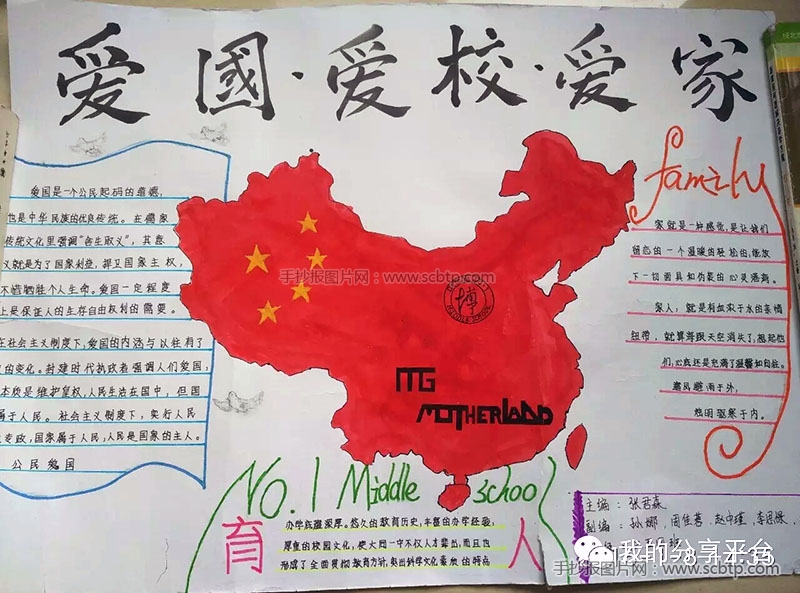 爱國·爱校·爱家
family
爱国是一个公民起码的道德,
也是中华民族的优良传统。在儒家
传统文化里强调"舍生取义",其意
义就是为了国家利益,捍卫国家主权,
不惜牺牲个人生命。爱国一定程度
上是保证人的生存自由权利的需要。
在社会主义制度下,爱国的内涵与以往有了
的变化。封建时代执政者强调人们爱国,
本质是维护皇权,人民生活在国中,但国
属于人民。社会主义制度下,实行人民
专政,国家属于人民,人民是国家的主人。
公民
家就是一种感觉,是让我们
一个温暖的轻松的,能放
下一切面具和伪装的心灵港湾。
家人,就是有血浓于水的亲情
纽带,就算海跟天空消失了,想起他
们,心底还是充满了温馨和自在。
避风避雨于外,
手抄报图片网:www.scbtp.com
博
MG
MOTHERLAND
No.1 Middle school
育人
办学底蕴深厚。悠久的教育历史,丰富的办学经验,
厚重的校园文化,使大同一中不仅人才辈出,而且也
形成了全面贯彻教育方针,突出科学文化素质的特点
主编:张君森
副编:孙娜,周佳蓉,赵中瑾,李
我的分享平台
手抄报图片网:www.scbtp.com